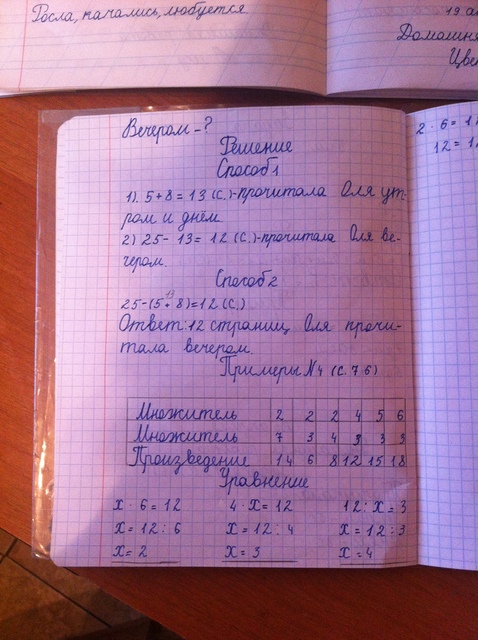 Росла, качались, любуется
19 ап
Домашня
Цве
Вечером - ?
Решение
Способ 1
1). 5+8=13 (с.)-прочитала Оля ут-
ром и днём
2) 25-13=12 (с.)-прочитала Оля ве-
чером.
Способ 2
13
25-(5+8)=12 (с.)
Ответ: 12 страниц Оля прочи-
тала вечером.
Примеры №4 (с. 76)
Множитель 2 2 2 4 5 6
Множитель 7 3 4 3 3 3
Произведение 14 6 8 12 15 18
Уравнение
х · 6 = 12 4 · х = 12 12 : х = 3
х = 12 : 6 х = 12 : 4 х = 12 : 3
х = 2 х = 3 х = 4
2 · 6 = 1
12 = 1